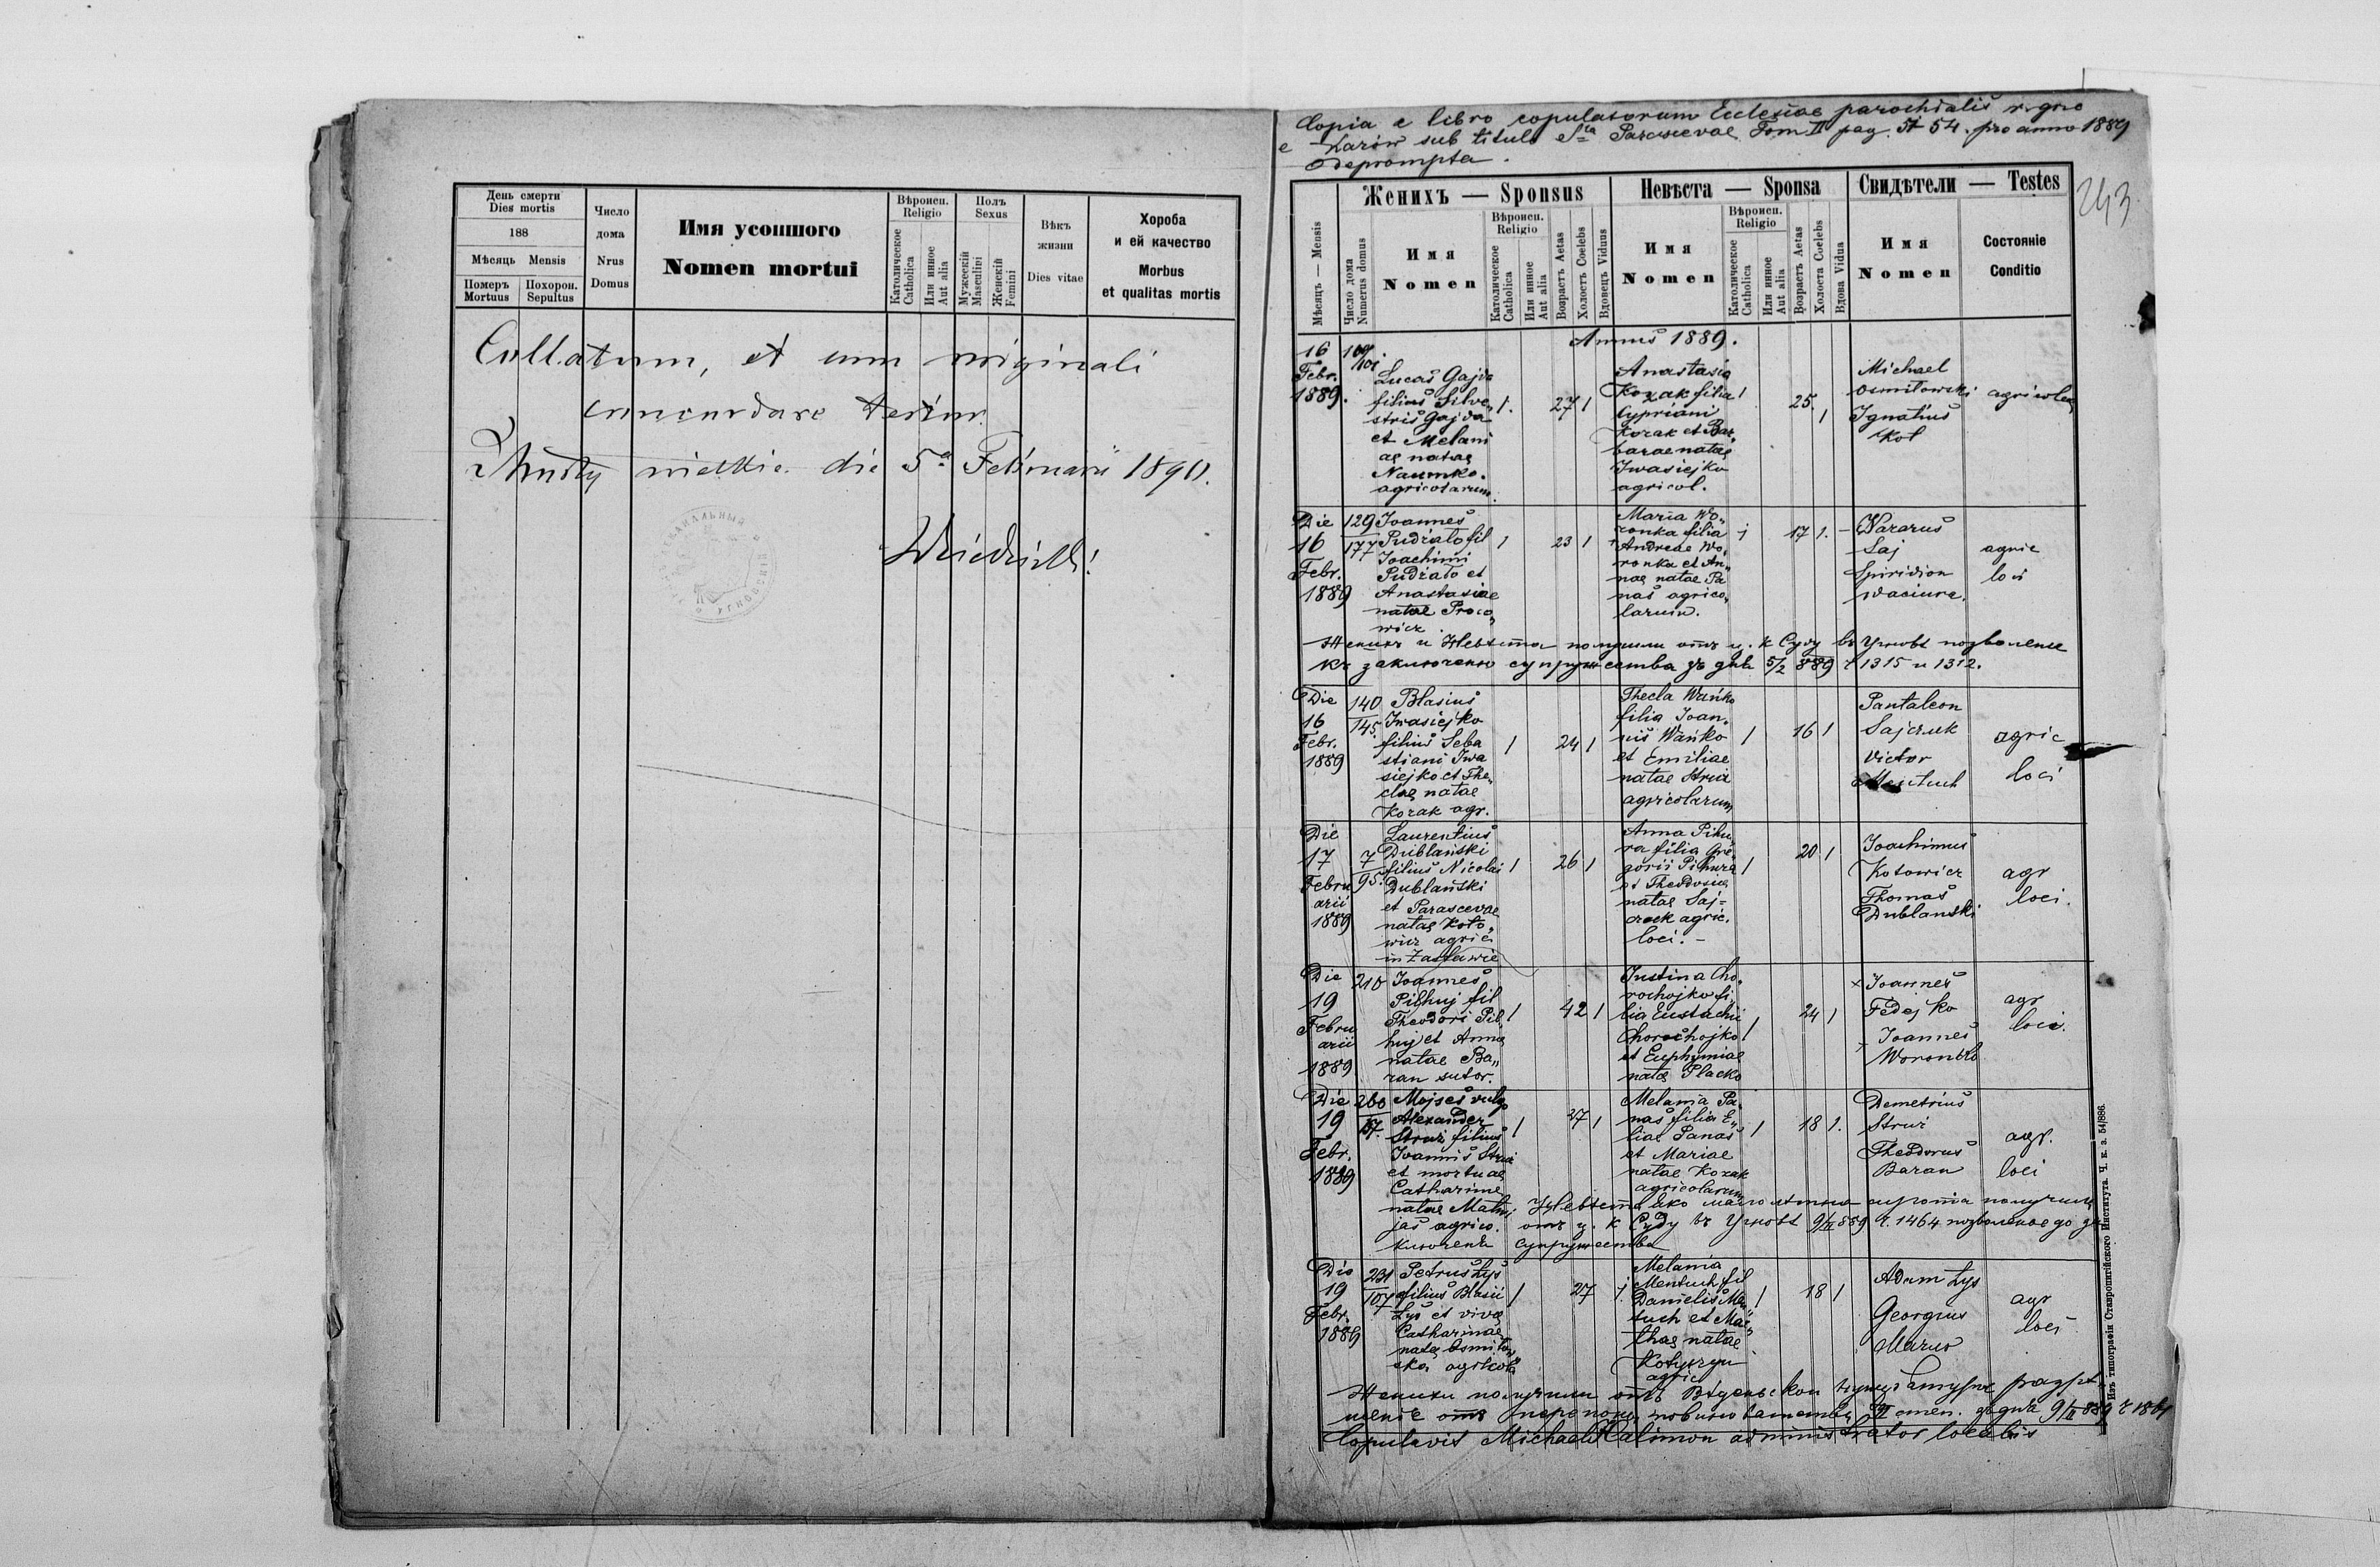 День смерти
Dies mortis
188
Мѣсяць Mensis
Померъ
Mortuus
Похорон.
Sepultus
Число
дома
Nrus
Domus
Имя усопшого
Nomen mortui
Вѣроисп.
Religio
Католическое
Catholica
Или инное
Aut alia
Полъ
Sexus
Мужескій
Masculini
Женскій
Femini
Вѣкъ
жизни
Dies vitae
Хороба
и ей качество
Morbus
et qualitas mortis
Collatum, et cum originali
concordare testor.
die 5a Februarii 1890.
Copia e libro copulatorum Ecclesiae parochialis r. gr.
sub titulo Stа Parascevae Tom II pag. 54. pro anno 1889
deprompta.
243
Мѣсяць — Mensis
Число дома
Numerus domus
Женихъ — Sponsus
Имя
Nomen
Вѣроисп.
Religio
Католическое
Catholica
Или инное
Aut alia
Возрастъ Aetas
Холостъ Coelebs
Вдовецъ Viduus
Невѣста — Sponsa
Имя
Nomen
Вѣроисп.
Religio
Католическое
Catholica
Или инное
Aut alia
Возрастъ Aetas
Холоста Coelebs
Вдова Vidua
Свидѣтели — Testes
Имя
Nomen
Состояніе
Conditio
Annus 1889.
16
Febr.
1889.
Lucas Gajda
filius Silve„
stris Gajda
et Melani
ae natae
Naumko.
agricolarum.
1. 27 1
Anastasia
Kozak filia
Cypriani
Kozak et Bar„
barae natae
Iwasiejko
agricol.
1 25. 1
Michael
Osmiłowski
Ignatius
Kot
agricolae
Die
16
Febr.
1889
129
177
Joannes
Pudrało fil
Joachimi
Pudrało et
Anastasiae
natae Proco„
wicz
1 23 1
Maria Wo„
ronka filia
Andreae Wo„
ronka et An„
nae natae Pa
nas agrico„
larum.
1 17 1.
Nazarus
Saj
Spiridion
Waciura.
agric
loci
Женихъ и Невѣста получили отъ ц. к Суду въ Угновѣ позволеніе
къ заключенію супружества зъ дня 5/2 889 ч 1315 и 1312.
Die
16
Febr.
1889
140
145.
Blasius
Iwasiejko
filius Seba
stiani Iwa
siejko et The„
clae natae
Kozak agr.
1 24 1
Thecla Wańko
filia Joan„
nis Wańko
et Emiliae
natae Struś
agricolarum
1 16 1
Pantaleon
Sajczuk
Victor
agric
loci
Die
17
Febru
arii
1889
7
95.
Laurentius
Dublański
filius Nicolai
Dublański
et Parascevae
natae Koto„
wicz agric.
in Zastawie
1 26 1
Anna Pihu
ra filia Gre„
gorii Pihura
et Theodosiae
natae Saj=
czuk agric.
loci. –
1 20 1
Joachimus
Kotowicz
Thomas
Dublanski
agr
loci.
Die
19
Febru
arii
1889
210
Joannes
Pilhuj fil
Theodori Pil„
huj et Anna
natae Ba„
ran sutor.
1 42 1
Justina Cho„
rochojko fi„
lia Eustachii
Chorochojko
et Euphymiae
natae Placko
1 24 1
Joannes
Fedejko
Joannes
Woronko
agr
loci.
Die
19
Febr.
1889
260
Mojses vulgo
Alexander
filius
Joannis
et mortuae
Catharinae
natae Mat„
jas agrico.
1 27 1
Melania Pa„
nas filia E„
liae Panas
et Mariae
natae Kozak
agricolarum
1 18 1.
Demetrius
Theodorus
Baran
agr.
loci
Невѣста яко малолѣтна сирота получила
отъ ц. к Суду въ Угновѣ 9/II 889 ч. 1464 позволеніе до за
ключенія супружества
Die
19
Febr.
1889
231
107
Petrus Łys
filius Blasii
Łys et vivae
Catharinae
natae Osmiłow
ska agricola
1 27 1
Melania
Mentuch fil
Danielis Men
tuch et Mar„
thae natae
agric
1 18 1
Adam Łys
Georgius
Mazur
agr
loci
Copulavit Michael Kalimon administrator localis
Изъ типографіи Ставропигійского Института. Ч. к. з. 54/886.